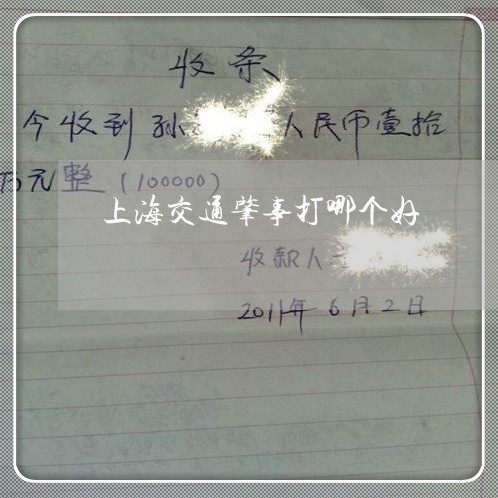 收条
今收到孙 人民币壹拾
万元整(100000)
上海交通肇事打哪个好
收款人
2011年6月2日